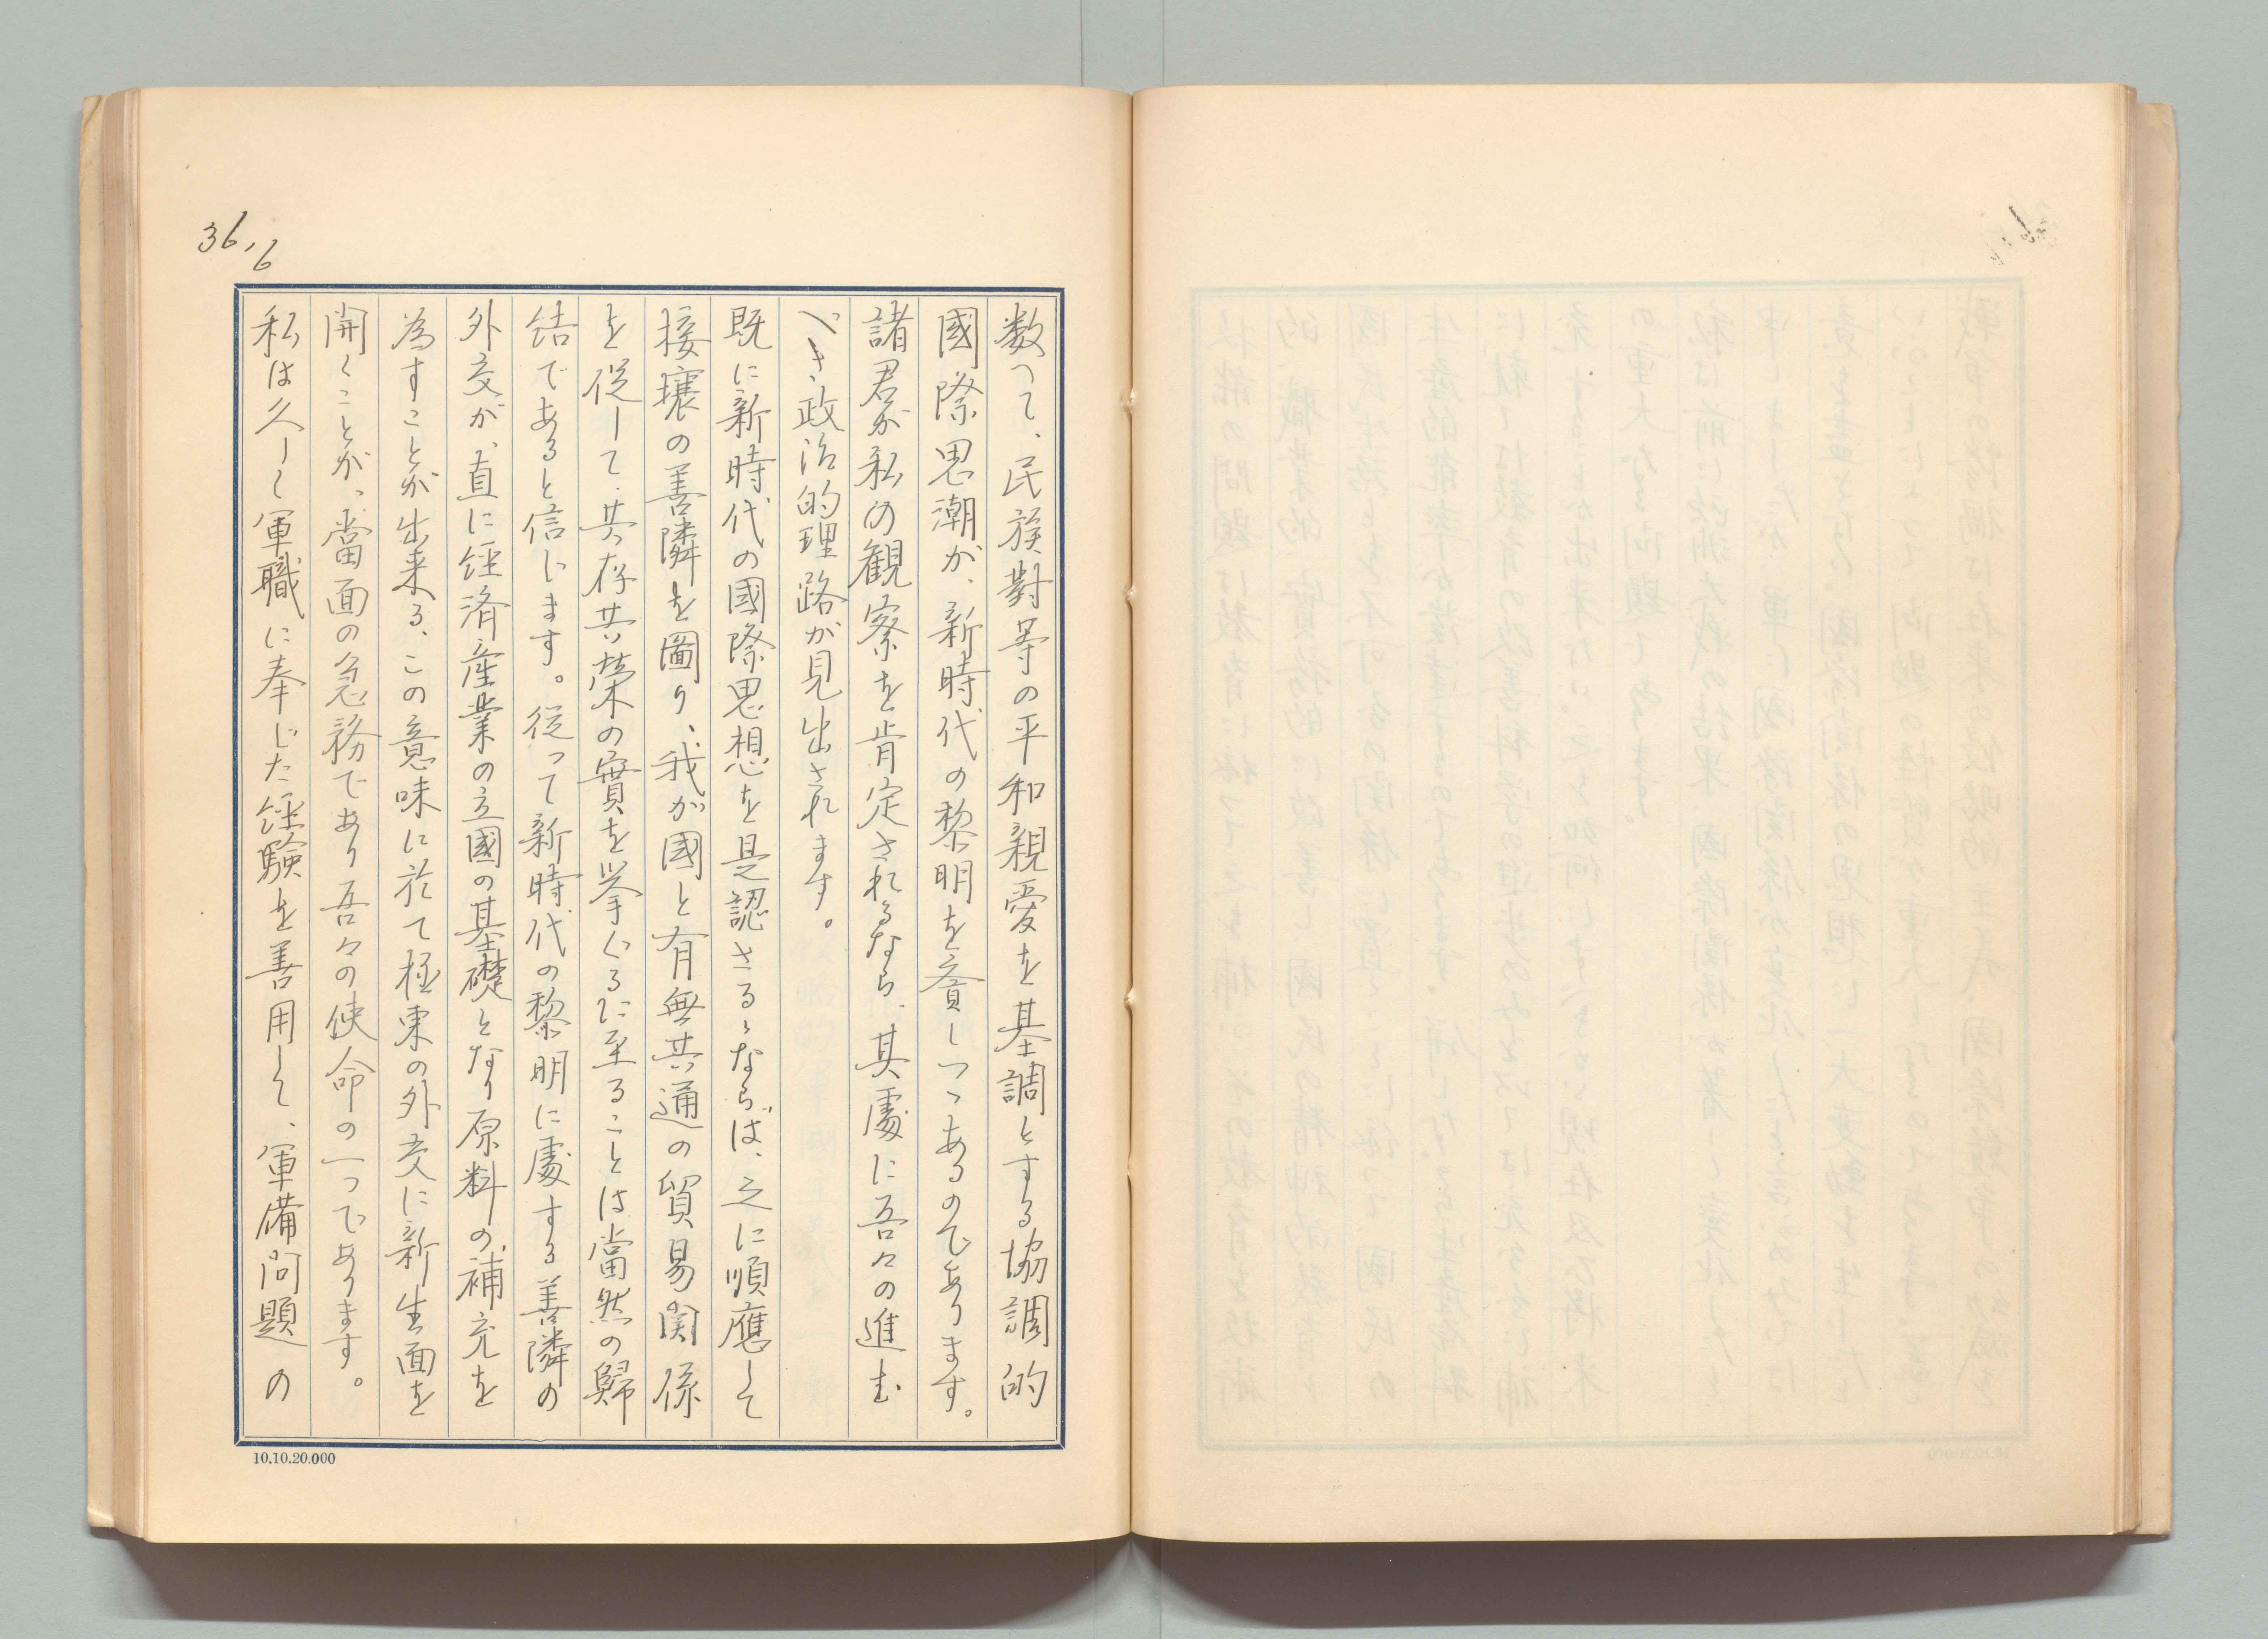 36,6
数つて、民族對等の平和親愛を基調とする協調的
國際思潮が、新時代の黎明を齎しつゝあるのであります。
諸君が私の観察を肯定されるなら、其處に吾々の進む
べき政治的理路が見出されます。
既に新時代の國際思想を是認さるゝならば、之に順應して
接壤の善隣を圖り、我が國と有無共通の貿易関係
を促して、共存共榮の實を挙ぐるに至ることは當然の歸
結であると信じます。従って新時代の黎明に處する善隣の
外交が、直に経済産業の立國の基礎となり原料の補充を
為すことが出来る、この意味に於て極東の外交に新生面を
開くことが、當面の急務であり吾々の使命の一つであります。
私は久しく軍職に奉じた経験を善用して、軍備問題の
10.10.20.000